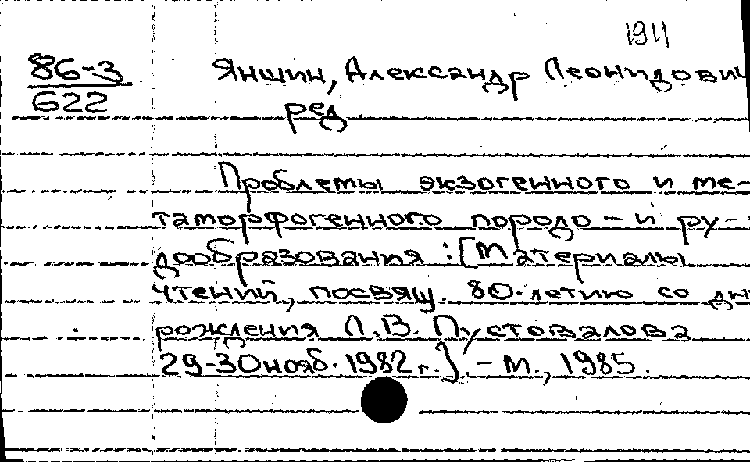 1911
86-3
622
Яншин, Александр Леонидович
ред.
Проблемы экзогенного и ме-
таморфогенного породо- и ру-
дообразования : [Материалы
чтений, посвящ. 80-летию со дн
рождения Л.В. Пустовалова
29-30 нояб. 1982 г.]. - М., 1985.